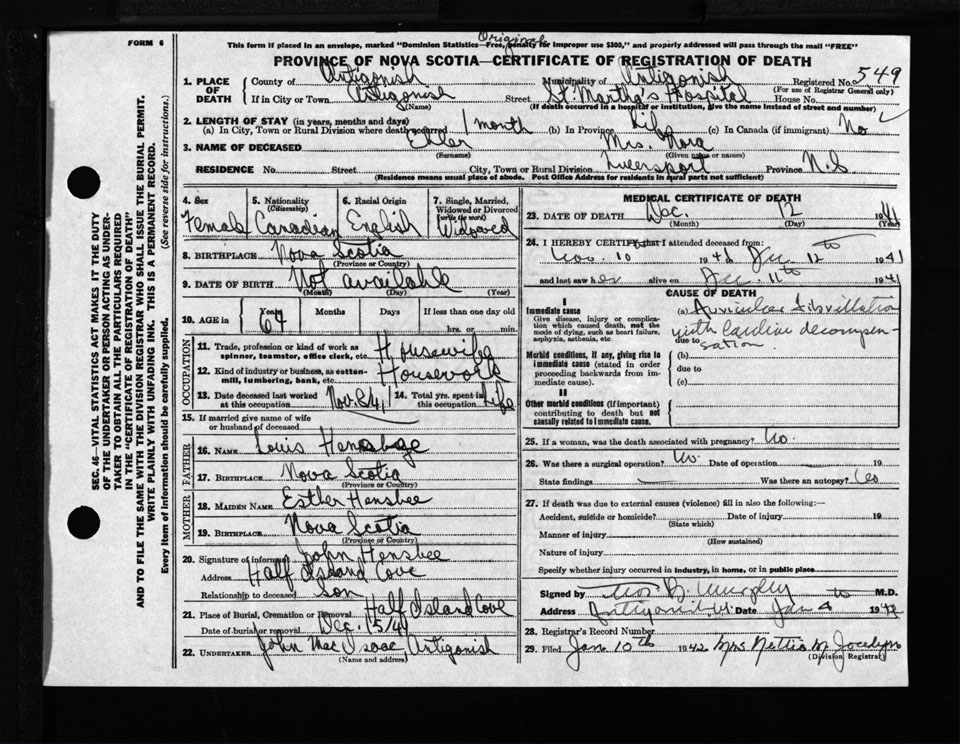 Original
FORM 6
This form if placed in an envelope, marked "Dominion Statistics—Free, penalty for improper use $300," and properly addressed will pass through the mail "FREE"
PROVINCE OF NOVA SCOTIA—CERTIFICATE OF REGISTRATION OF DEATH
1. PLACE OF DEATH County of Antigonish Municipality of Antigonish Registered No. 549
(For use of Registrar General only)
If in City or Town Antigonish Street St. Martha's Hospital House No.
(Name) (If death occurred in a hospital or institution, give the name instead of street and number)
2. LENGTH OF STAY (in years, months and days)
(a) In City, Town or Rural Division where death occurred 1 month (b) In Province Life (c) In Canada (if immigrant) No
3. NAME OF DECEASED Ehler Mrs. Nora
(Surname) (Given name or names)
RESIDENCE No. Street City, Town or Rural Division Province N.S
(Residence means usual place of abode. Post Office Address for residents in rural parts not sufficient)
4. Sex Female
5. Nationality (Citizenship) Canadian
6. Racial Origin English
7. Single, Married, Widowed or Divorced (write the word) Widowed
8. BIRTHPLACE Nova Scotia
(Province or Country)
9. DATE OF BIRTH Not available
(Month) (Day) (Year)
10. AGE in Years Months Days If less than one day old
64 hrs. or min.
OCCUPATION
11. Trade, profession or kind of work as spinner, teamster, office clerk, etc. Housewife
12. Kind of industry or business, as cotton-mill, lumbering, bank, etc. Housework
13. Date deceased last worked at this occupation Nov. 8/41 14. Total yrs. spent in this occupation Life
15. If married give name of wife or husband of deceased
FATHER
16. NAME Louis
17. BIRTHPLACE Nova Scotia
(Province or Country)
MOTHER
18. MAIDEN NAME Esther Hensbee
19. BIRTHPLACE Nova Scotia
(Province or Country)
20. Signature of informant John Hensbee
Address Half Island Cove
Relationship to deceased Son
21. Place of Burial, Cremation or Removal Half Island Cove
Date of burial or removal Dec. 15/41
22. UNDERTAKER John MacIsaac Antigonish
(Name and address)
MEDICAL CERTIFICATE OF DEATH
23. DATE OF DEATH Dec. 12 1941
(Month) (Day) (Year)
24. I HEREBY CERTIFY that I attended deceased from:
Nov. 10 1941 to Dec 12 1941
and last saw her alive on Dec. 11th 1941
CAUSE OF DEATH
I
Immediate cause
Give disease, injury or complication which caused death, not the mode of dying, such as heart failure, asphyxia, asthenia, etc.
(a) Auricular Fibrillation
with Cardiac decompen-
due to sation.
Morbid conditions, if any, giving rise to immediate cause (stated in order proceeding backwards from immediate cause).
(b)
due to
(c)
II
Other morbid conditions (if important) contributing to death but not causally related to immediate cause.
25. If a woman, was the death associated with pregnancy? No.
26. Was there a surgical operation? No. Date of operation 19
State findings Was there an autopsy? No
27. If death was due to external causes (violence) fill in also the following:—
Accident, suicide or homicide? Date of injury 19
(State which)
Manner of injury
(How sustained)
Nature of injury
Specify whether injury occurred in industry, in home, or in public place
Signed by B. Murphy M.D.
Address Antigonish Date Jan 4 1942
28. Registrar's Record Number
29. Filed Jan 10th 1942 Mrs Nettie M Jocelyn
(Division Registrar)
SEC. 46—VITAL STATISTICS ACT MAKES IT THE DUTY
OF THE UNDERTAKER OR PERSON ACTING AS UNDER-
TAKER TO OBTAIN ALL THE PARTICULARS REQUIRED
IN THE "CERTIFICATE OF REGISTRATION OF DEATH"
AND TO FILE THE SAME WITH THE DIVISION REGISTRAR WHO SHALL ISSUE THE BURIAL PERMIT.
WRITE PLAINLY WITH UNFADING INK. THIS IS A PERMANENT RECORD.
Every item of information should be carefully supplied. (See reverse side for instructions.)